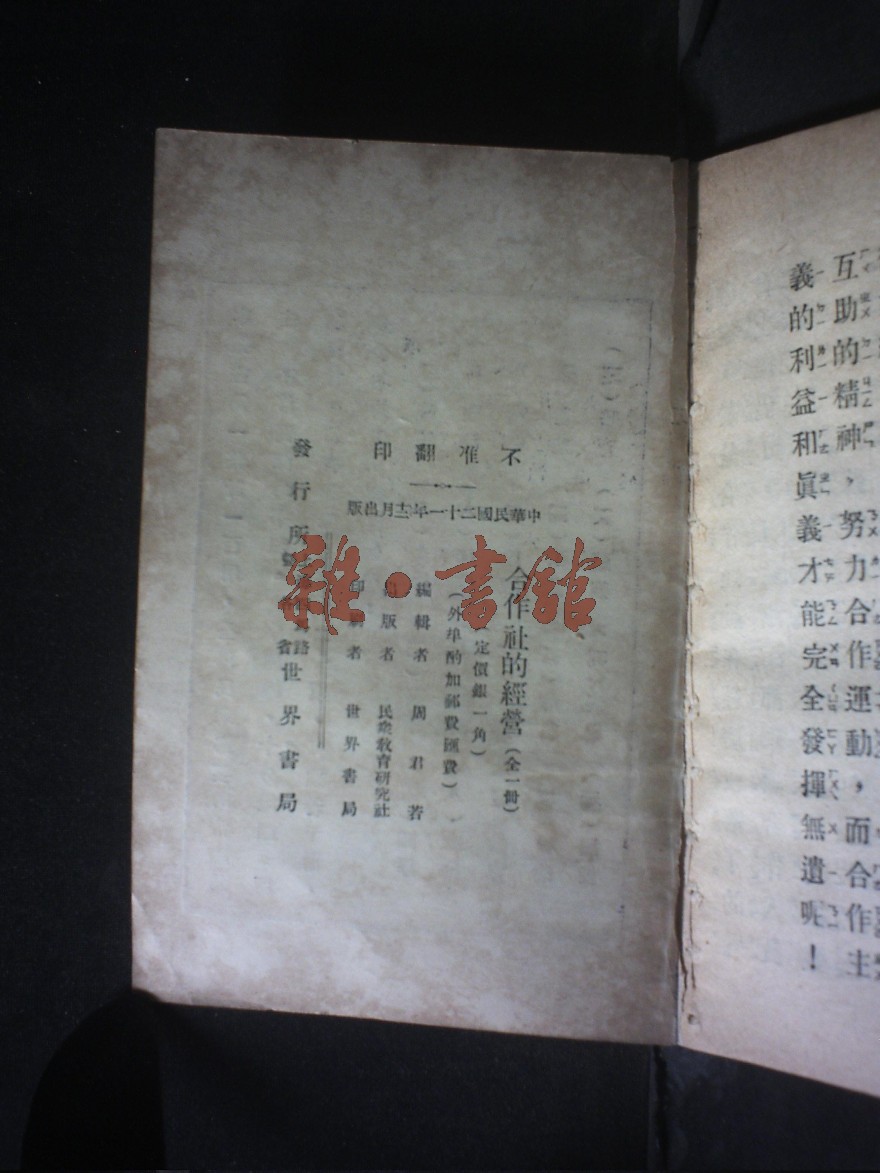 互助的精神，努力合作運動，而合作主
義的利益和眞義才能完全發揮無遺呢！
不准翻印
中華民國二十一年十二月出版
合作社的經營（全一冊）
定價銀一角）
（外埠酌加郵費匯費）
編輯者 周君著
版者 民衆教育研究社
印刷者 世界書局
發行所 世界書局
雜·書館